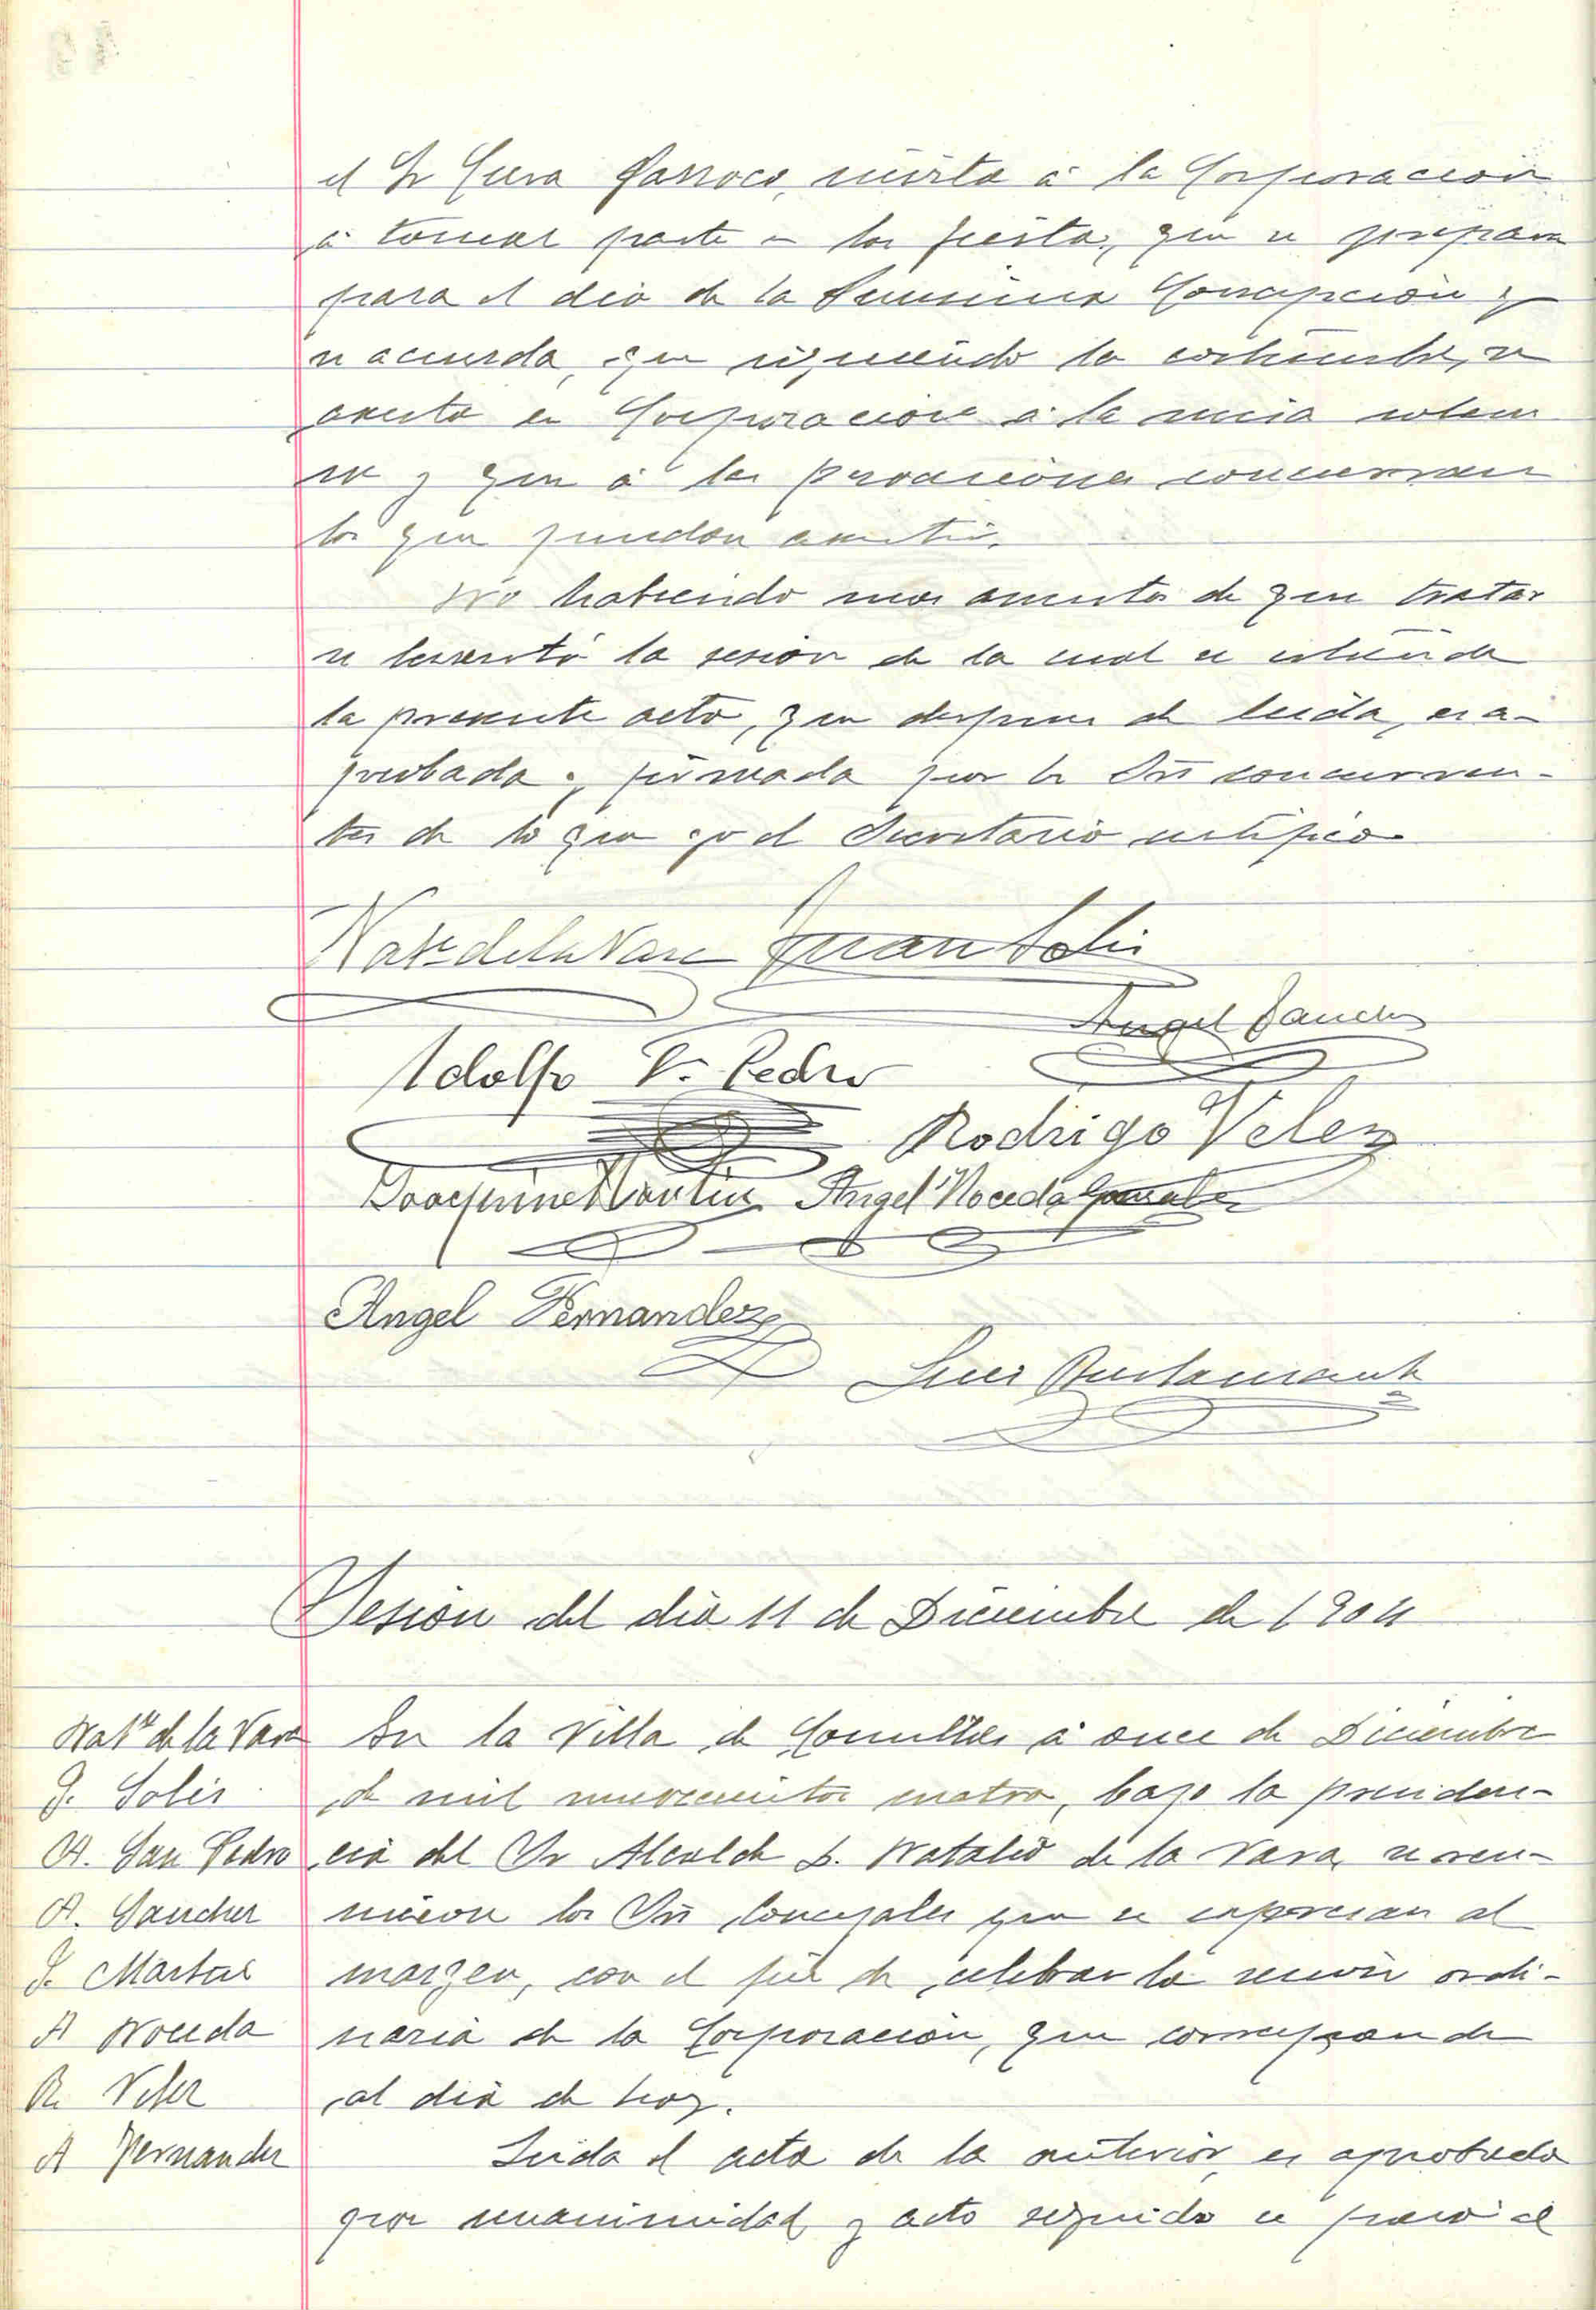 el Sr Cura Parroco, invita á la Corporacion
á tomar parte en las fiestas, que se preparan
para el dia de la Purisima Concepcion y
se acuerda, que siguiendo la costumbre, se
asista en Corporacion á la misa solem
ne y que á las procesiones concurran
los que puedan asistir.
No habiendo mas asuntos de que tratar
se levantó la sesion de la cual se extiende
la presente acta, que despues de leida, es a-
probada y firmada por los Sres concurren-
tes de lo que yo el Secretario certifico
Natº de la Vara Juan Solis
Angel Sanchez
Adolfo S. Pedro
Rodrigo Velez
Joaquin Martin Angel Noceda Gonzalez
Angel Fernandez
Luis Bustamante
Sesion del dia 11 de Diciembre de 1904
Natº de la Vara
J. Solis
A. San Pedro
A. Sanchez
J. Martin
A Noceda
R. Velez
A Fernandez
En la Villa de Comillas á once de Diciembre
de mil novecientos cuatro, bajo la presiden-
cia del Sr Alcalde D. Natalio de la Vara, se reu-
nieron los Sres Concejales que se expresan al
margen, con el fin de celebrar la sesion ordi-
naria de la Corporacion, que corresponde
al dia de hoy.
Leida el acta de la anterior, es aprobada
por unanimidad y acto seguido se pasó al